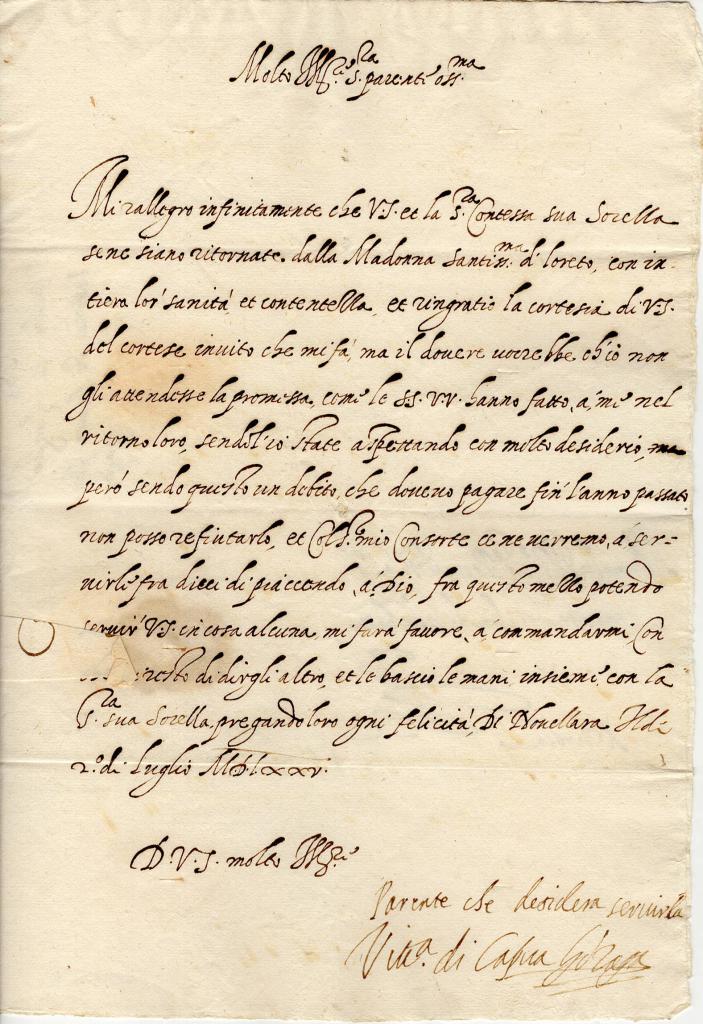 Molto Ill.re S.ra parente oss.ma
Mi rallegro infinitamente che V.S. et la S.ra Contessa sua Sorella
sene siano ritornate dalla Madonna Santiss.ma di loreto, con in-
tiera lor' sanità et contentezza, et ringratio la cortesia di V.S.
del cortese invito che mi fa, ma il dovere vorrebbe ch'io non
gli attendesse la promessa, come le SS.VV. hanno fatto, a' me nel
ritorno loro, sendol'io state aspettando con molto desiderio, ma
però sendo questo un debito, che dovevo pagare fin' l'anno passato
non posso refiutarlo, et Col S.r mio Consorte ce ne verremo, a ser-
virle fra dieci di piaccendo, a Dio, fra questo mezzo potendo
servir' V.S. in cosa alcuna mi farà favore, a commandarmi, Con
resto di dirgli altro, et le bascio le mani insieme con la
S.ra sua Sorella, pregando loro ogni felicità, Di Novellara Il di
2.o di Luglio MDLXXV.
D.V.S. molto Ill.re
Parente che desidera servirla
Vitt.a di Capua Gōzaga